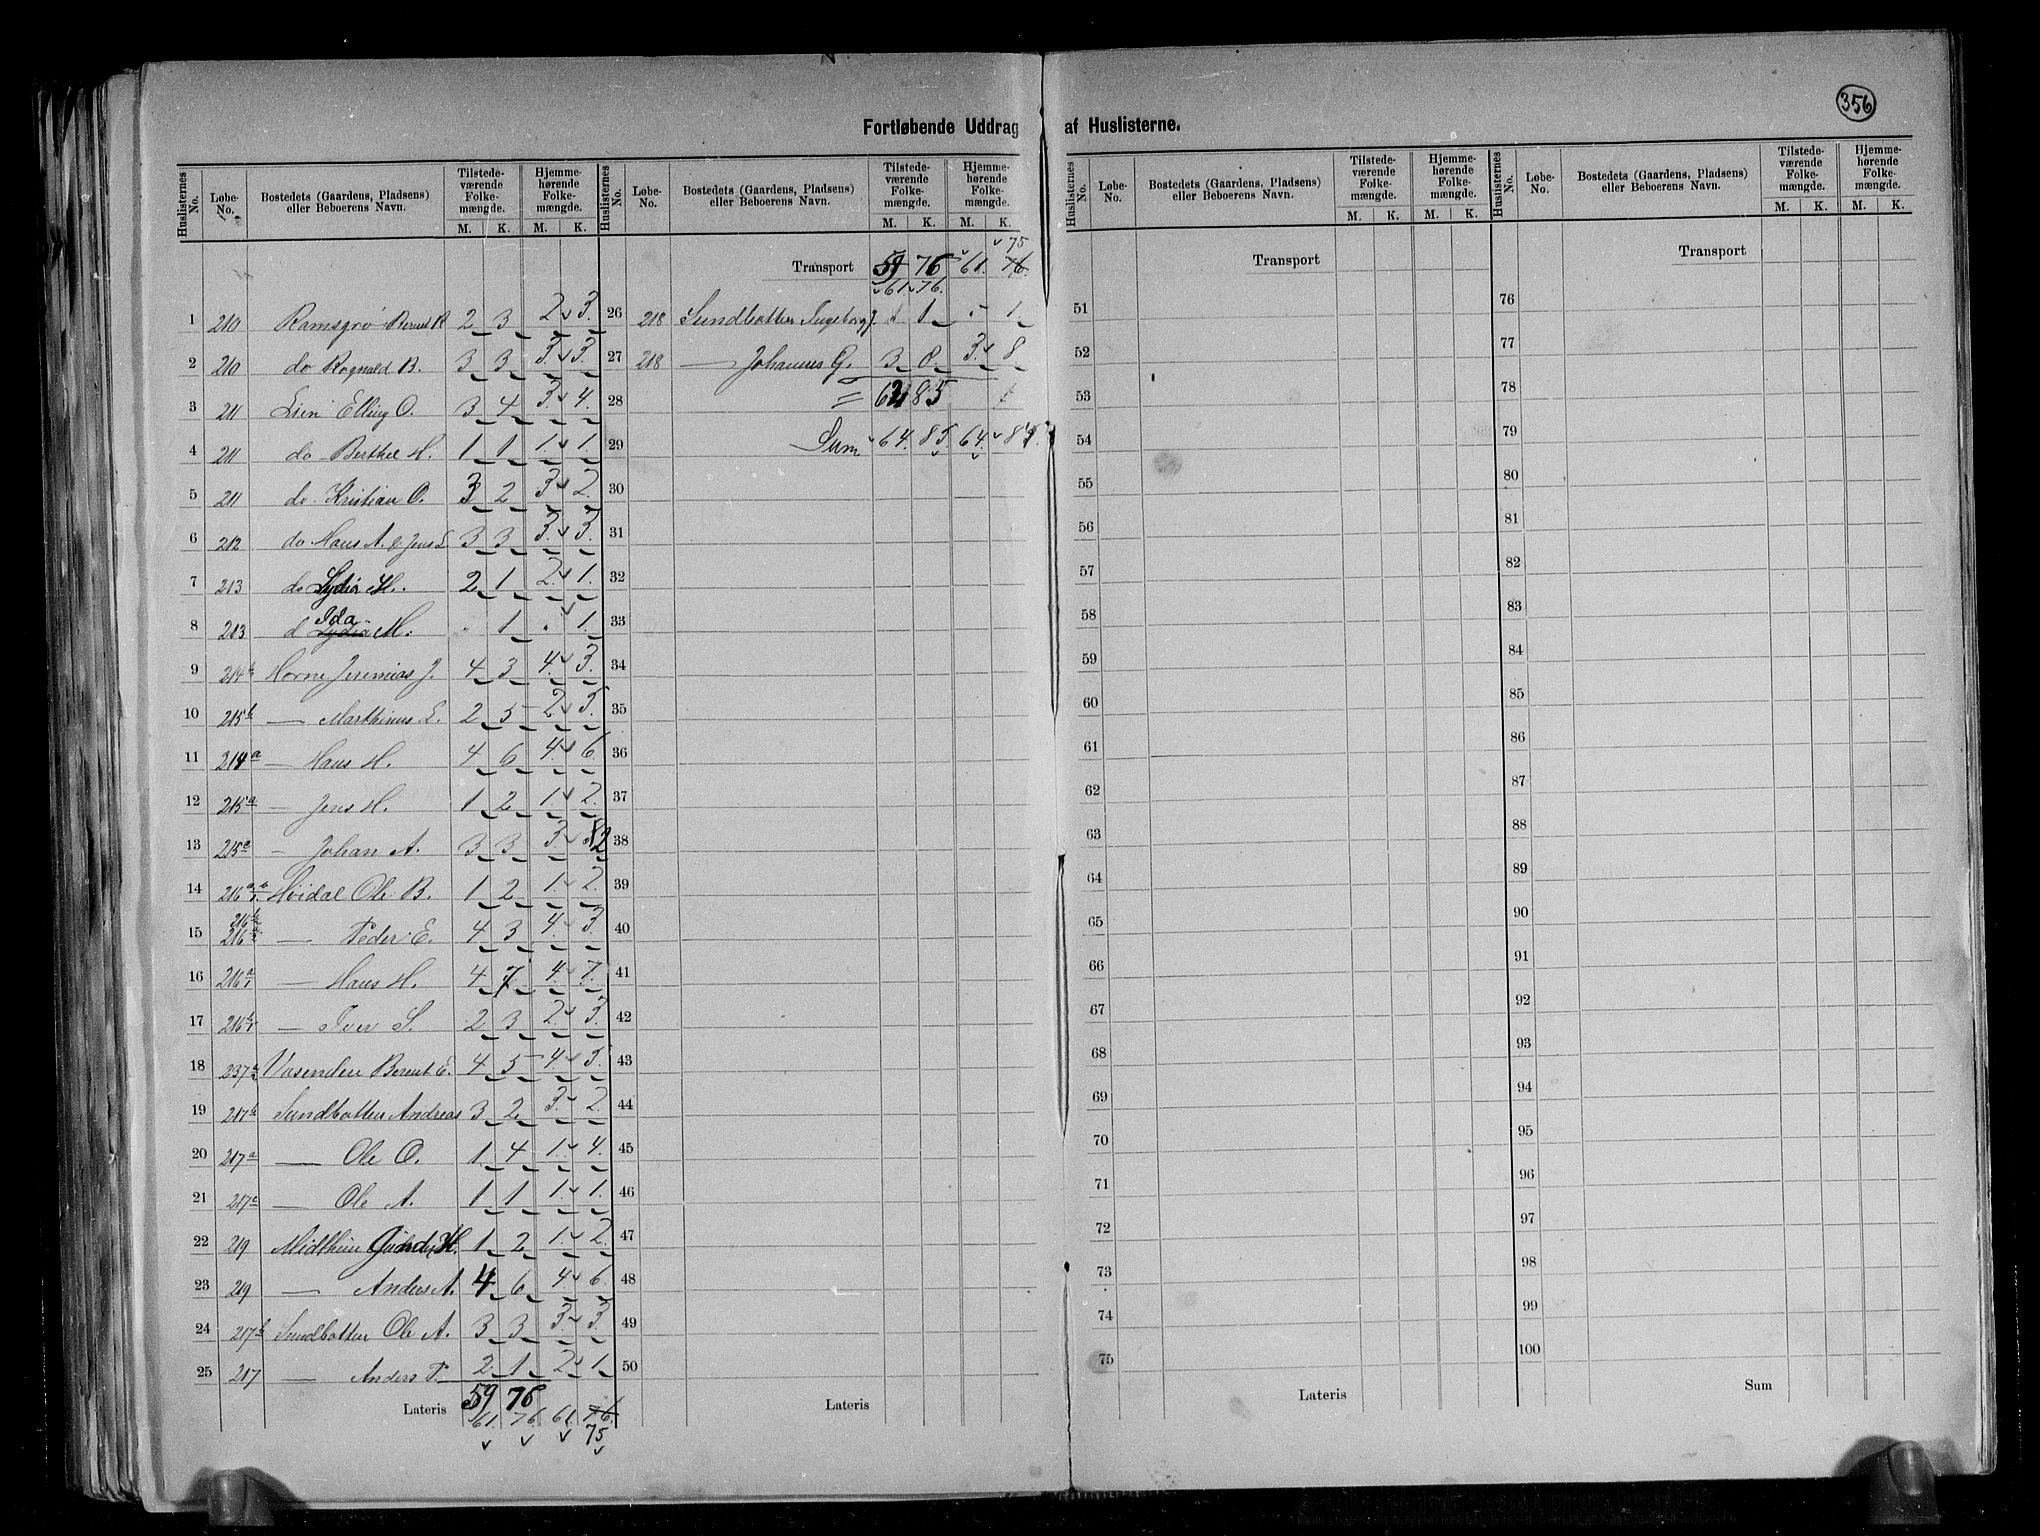 356
Fortløbende Uddrag af Huslisterne.
Huslisternes No. Løbe-No. Bostedets (Gaardens, Pladsens) eller Beboerens Navn. Tilstede-værende Folke-mængde. M. K. Hjemme-hørende Folke-mængde. M. K.
1 210 Ramsgrø Berent R. 2 3 2 3.
2 210 do Rognald B. 3 3 3. 3.
3 211 Lien Elling O. 3 4 3. 4.
4 211 do Berthel H. 1 1 1. 1.
5 211 do Kristian O. 3 2 3 2.
6 212 do Hans A. & Jens L. 3 3 3. 3.
7 213 do Lydia M. 2 1 2. 1.
8 213 d Ida M. " 1 " 1.
9 214 b Horne Jeremias J. 4 3 4. 3.
10 215 b — Marthinus L. 2 5 2 5.
11 214 a — Hans H. 4 6 4. 6.
12 215 a — Jens H. 1 2 1. 2.
13 215 c — Johan A. 3 3 3. 2
14 216 Høidal Ole B. 1 2 1. 2.
15 216 — Peder E. 4 3 4. 3.
16 216 — Hans H. 4 7 4. 7.
17 216 — Iver S. 2 3 2. 3.
18 237 Vasenden Berent E. 4 5 4 5.
19 217 b Sundbotten Andreas 3 2 3. 2.
20 217 a — Ole O. 1 4 1. 4.
21 217 c — Ole A. 1 1 1. 1.
22 219 Midthun H. 1 2 1. 2.
23 219 — Anders A. 4 6 4 6.
24 217 b Sundbotten Ole A. 3 3 3. 3.
25 217 — Anders P. 2 1 2 1.
Lateris 59 76
61. 76. 61. 76.
75
Huslisternes No. Løbe-No. Bostedets (Gaardens, Pladsens) eller Beboerens Navn. Tilstede-værende Folke-mængde. M. K. Hjemme-hørende Folke-mængde. M. K.
75
Transport 59 76 61. 76.
61. 76.
26 218 Sundbotten Ingeborg J. 1 " 1.
27 218 — Johannes G. 3 8 3. 8
28 85
29 Sum 64. 85 64.
30
31
32
33
34
35
36
37
38
39
40
41
42
43
44
45
46
47
48
49
50
Lateris
Huslisternes No. Løbe-No. Bostedets (Gaardens, Pladsens) eller Beboerens Navn. Tilstede-værende Folke-mængde. M. K. Hjemme-hørende Folke-mængde. M. K.
Transport
51
52
53
54
55
56
57
58
59
60
61
62
63
64
65
66
67
68
69
70
71
72
73
74
75
Lateris
Huslisternes No. Løbe-No. Bostedets (Gaardens, Pladsens) eller Beboerens Navn. Tilstede-værende Folke-mængde. M. K. Hjemme-hørende Folke-mængde. M. K.
Transport
76
77
78
79
80
81
82
83
84
85
86
87
88
89
90
91
92
93
94
95
96
97
98
99
100
Sum